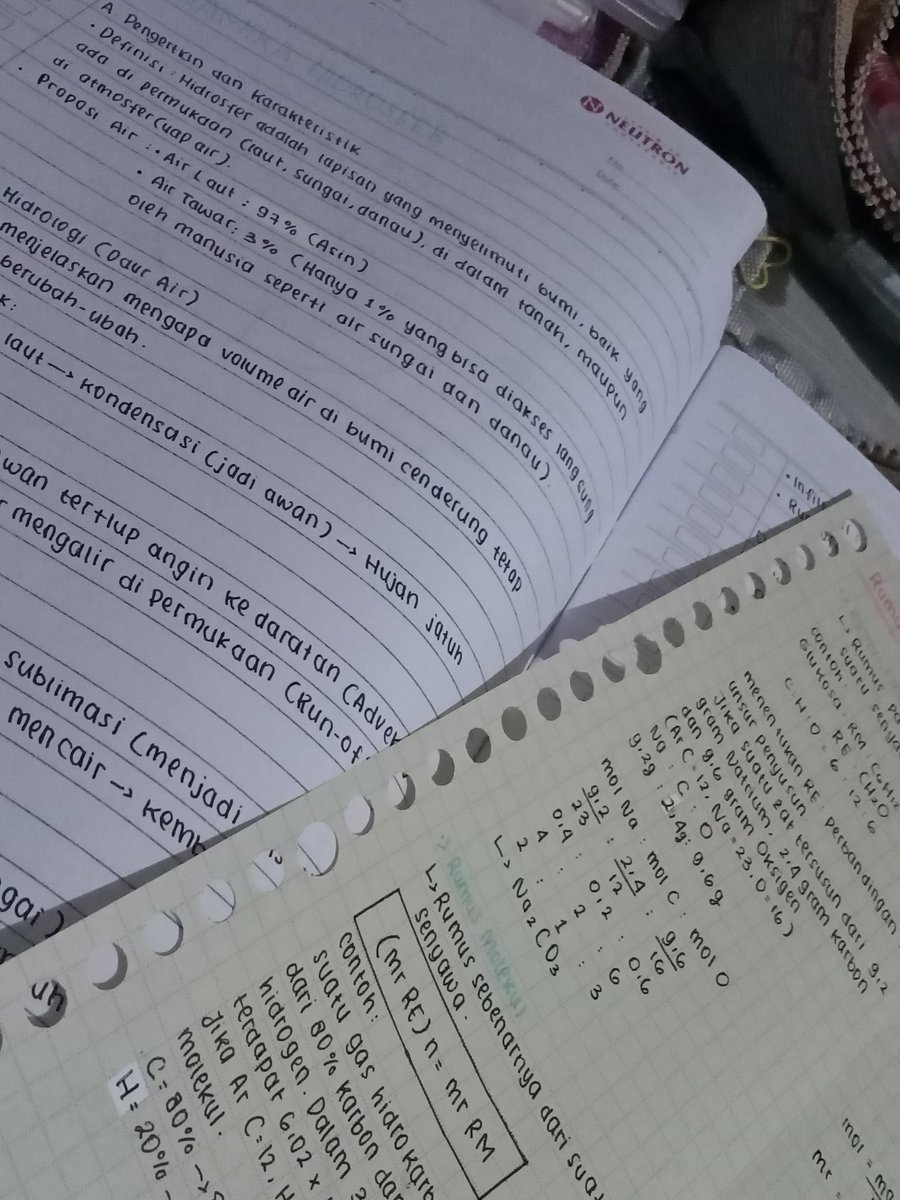 NEUTRON
A Pengertian dan Karakteristik
• Definisi : Hidrosfer adalah lapisan yang menyelimuti bumi, baik yang
ada di permukaan (laut, sungai, danau), di dalam tanah, maupun
di atmosfer (uap air).
• Proposi Air : • Air Laut : 97% (Asin)
• Air Tawar : 3% (Hanya 1% yang bisa diakses langsung
oleh manusia seperti air sungai dan danau).
Hidrologi (Daur Air)
menjelaskan mengapa volume air di bumi cenderung tetap
berubah-ubah.
k:
laut → Kondensasi (jadi awan) → Hujan jatuh
wan tertiup angin ke daratan (Advek
mengalir di permukaan (Run-of
sublimasi (menjadi
mencair → Kemb
gai)
• Infil
• Ru
Rumu
↳ Rumus pa
suatu senya
contoh:
Glukosa : RM C6H12
RE : CH2O
C : H : O = 6 : 12 : 6
menentukan RE : perbandingan
unsur penyusun.
Jika suatu zat tersusun dari 9,2
gram Natrium, 2,4 gram karbon
dan 9,6 gram Oksigen
(Ar C = 12, Na = 23, O = 16)
Na : C : O
9,2g : 2,4g : 9,6 g
mol Na : mol C : mol O
9,2 : 2,4 : 9,6
23 12 16
0,4 : 0,2 : 0,6
4 : 2 : 6
2 : 1 : 3
↳ Na2CO3
→ Rumus molekul
↳ Rumus sebenarnya dari suat
senyawa.
(mr RE) n = mr RM
contoh:
suatu gas hidrokarb
dari 80% karbon dan
hidrogen. Dalam 3
terdapat 6,02 x
Jika Ar C=12, H
molekul.
C = 80% →
H = 20%
mol = ma
mr